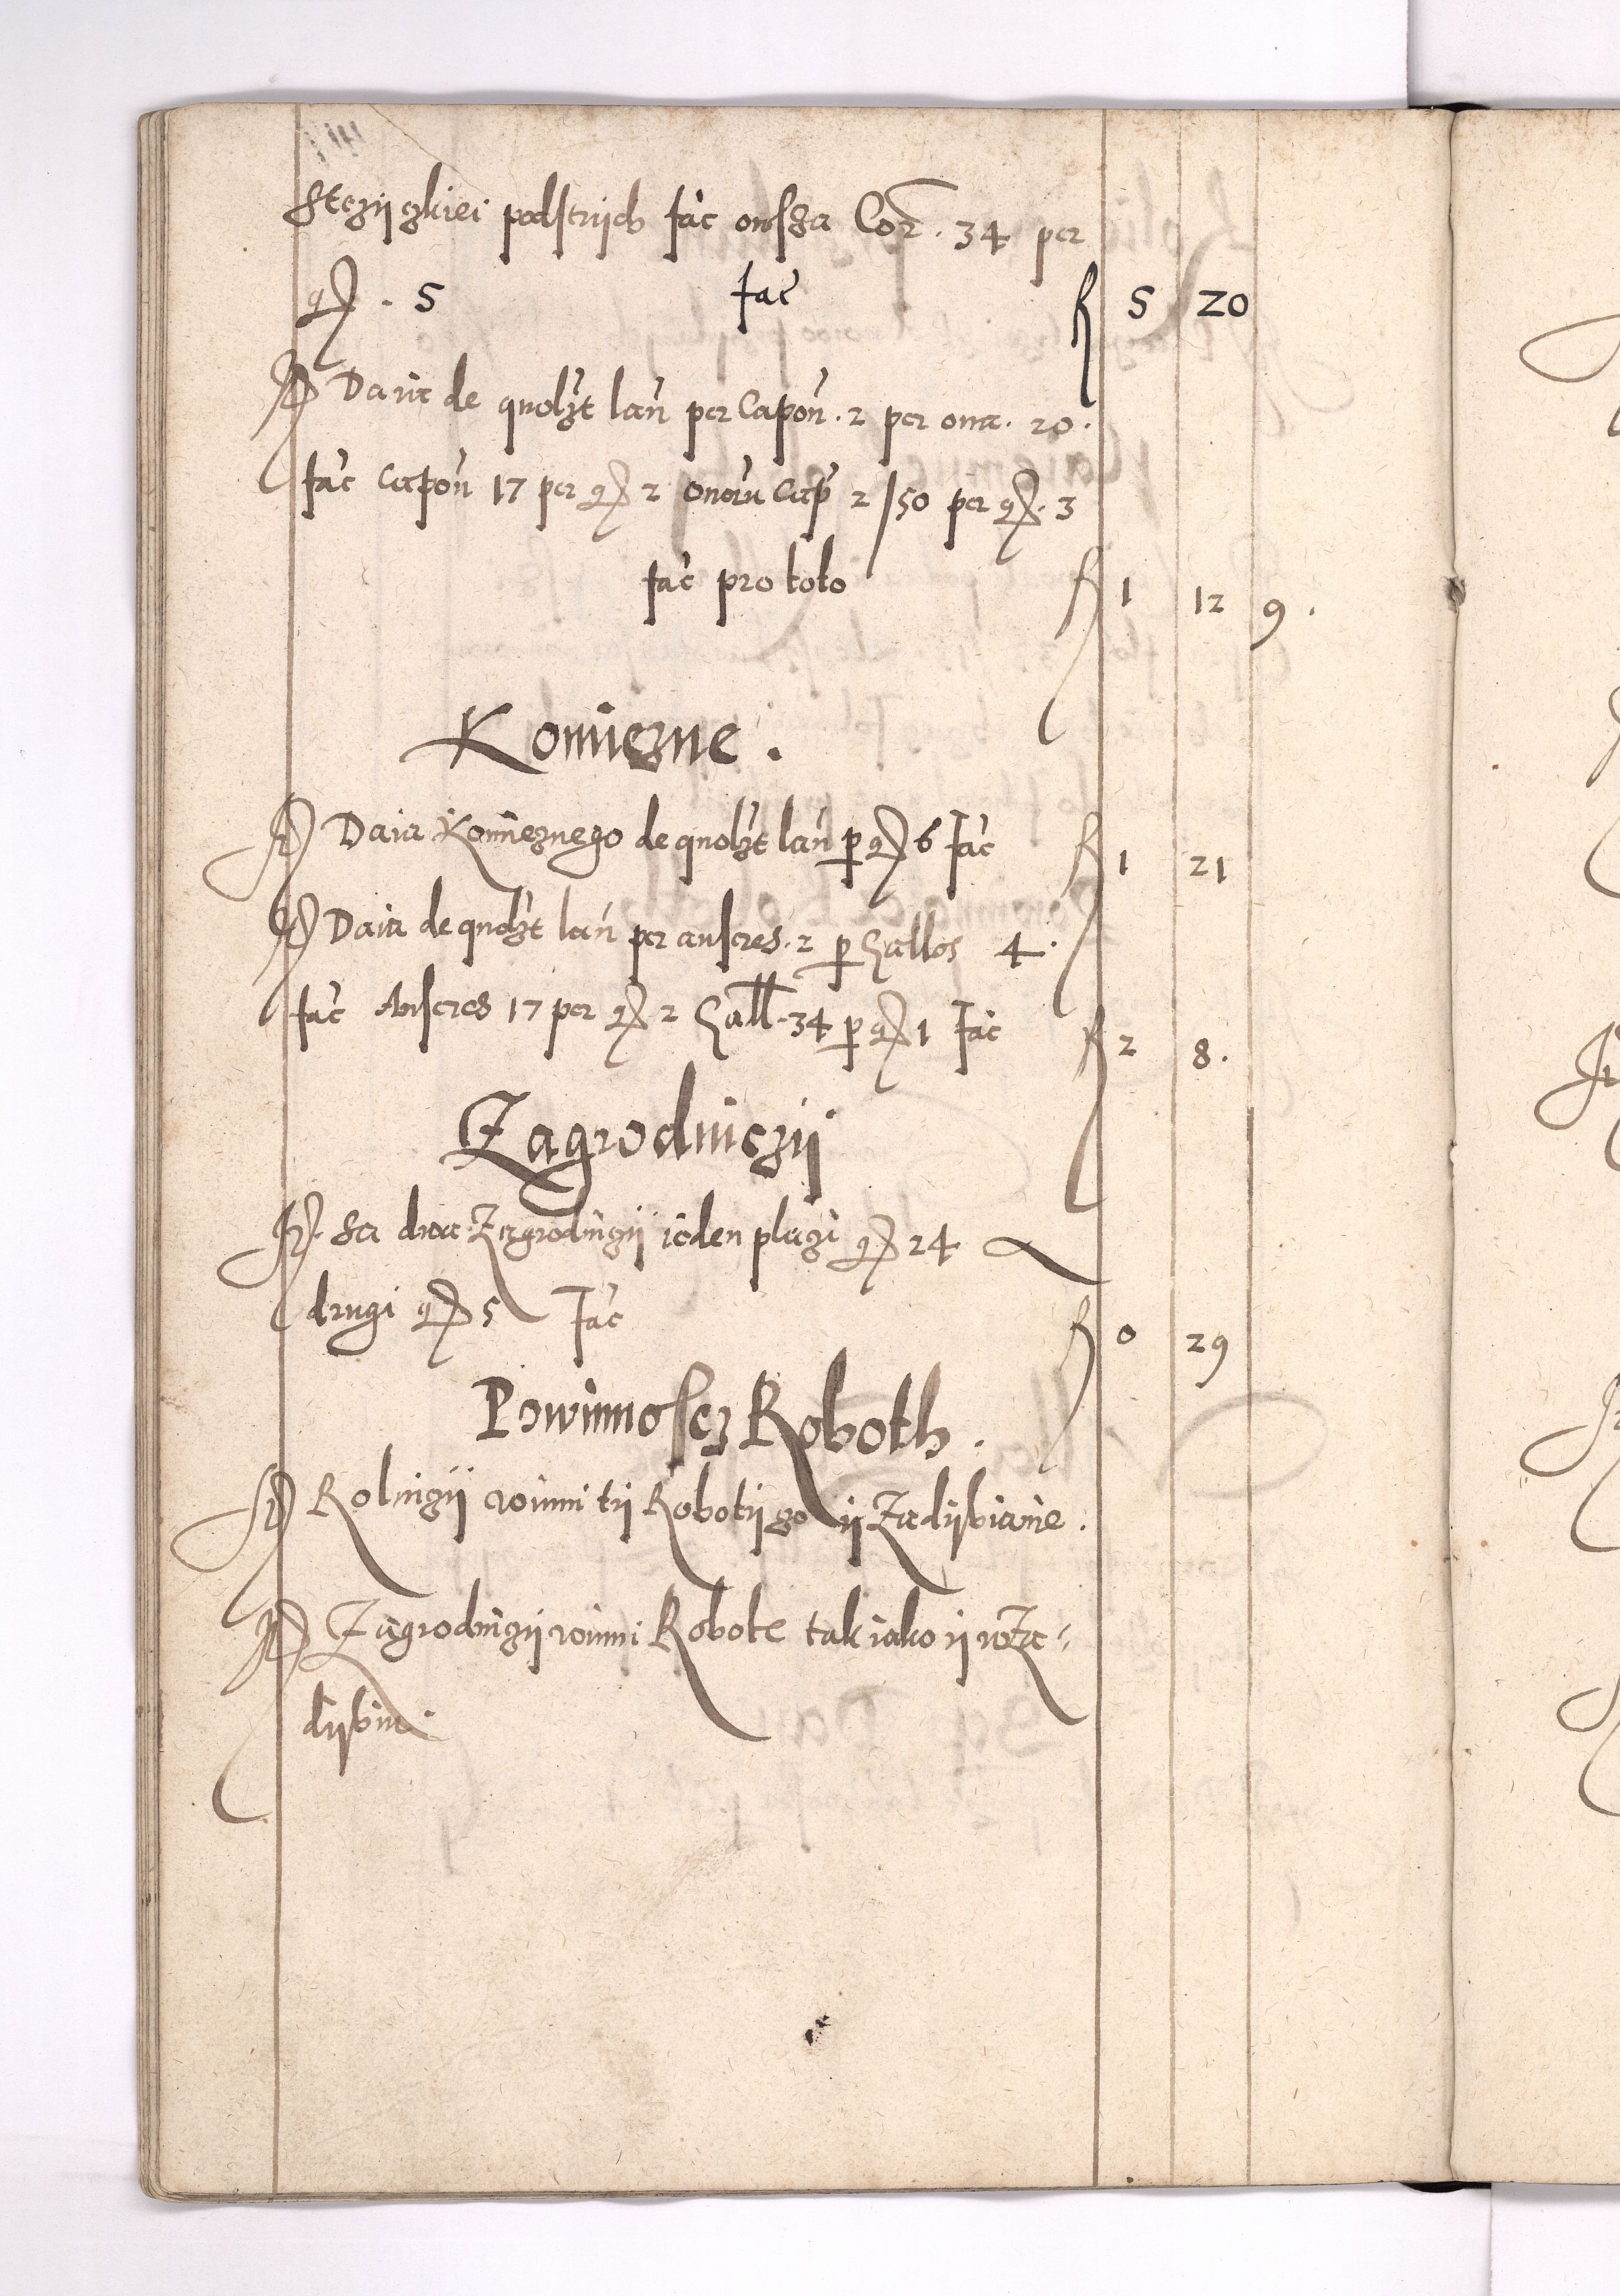 Stczÿczkiei podstrÿch fać owsza Cor. 34 per
gr. 5 fać fl 5 20
It Daią de quolzt lań per Capoń. 2 per oua. 20.
fać Capoń 17 per gr 2 ouoru Cap 2/50 per gr. 3
fać pro toto fl 1 12 9.
Komiezne.
It Daia Komieznego de quolzt lań p gr 6 fać fl 1 21
It Daia de quolzt lań per anseres. 2 p Gallos 4.
fać Anseres 17 per gr 2 Gall. 34 p gr 1 fać fl 2 8.
Zagrodniczÿ
It Sa dwa Zagrodniczÿ ieden placzi gr 24
drugi gr 5 fać fl 0 29
Powinnoscz Roboth.
It Rolniczÿ winni tÿ Robotÿ zo ÿ Zadÿbianie.
It Zagrodniczÿ winni Robote tak iako ÿ w Za-
dÿbiu.